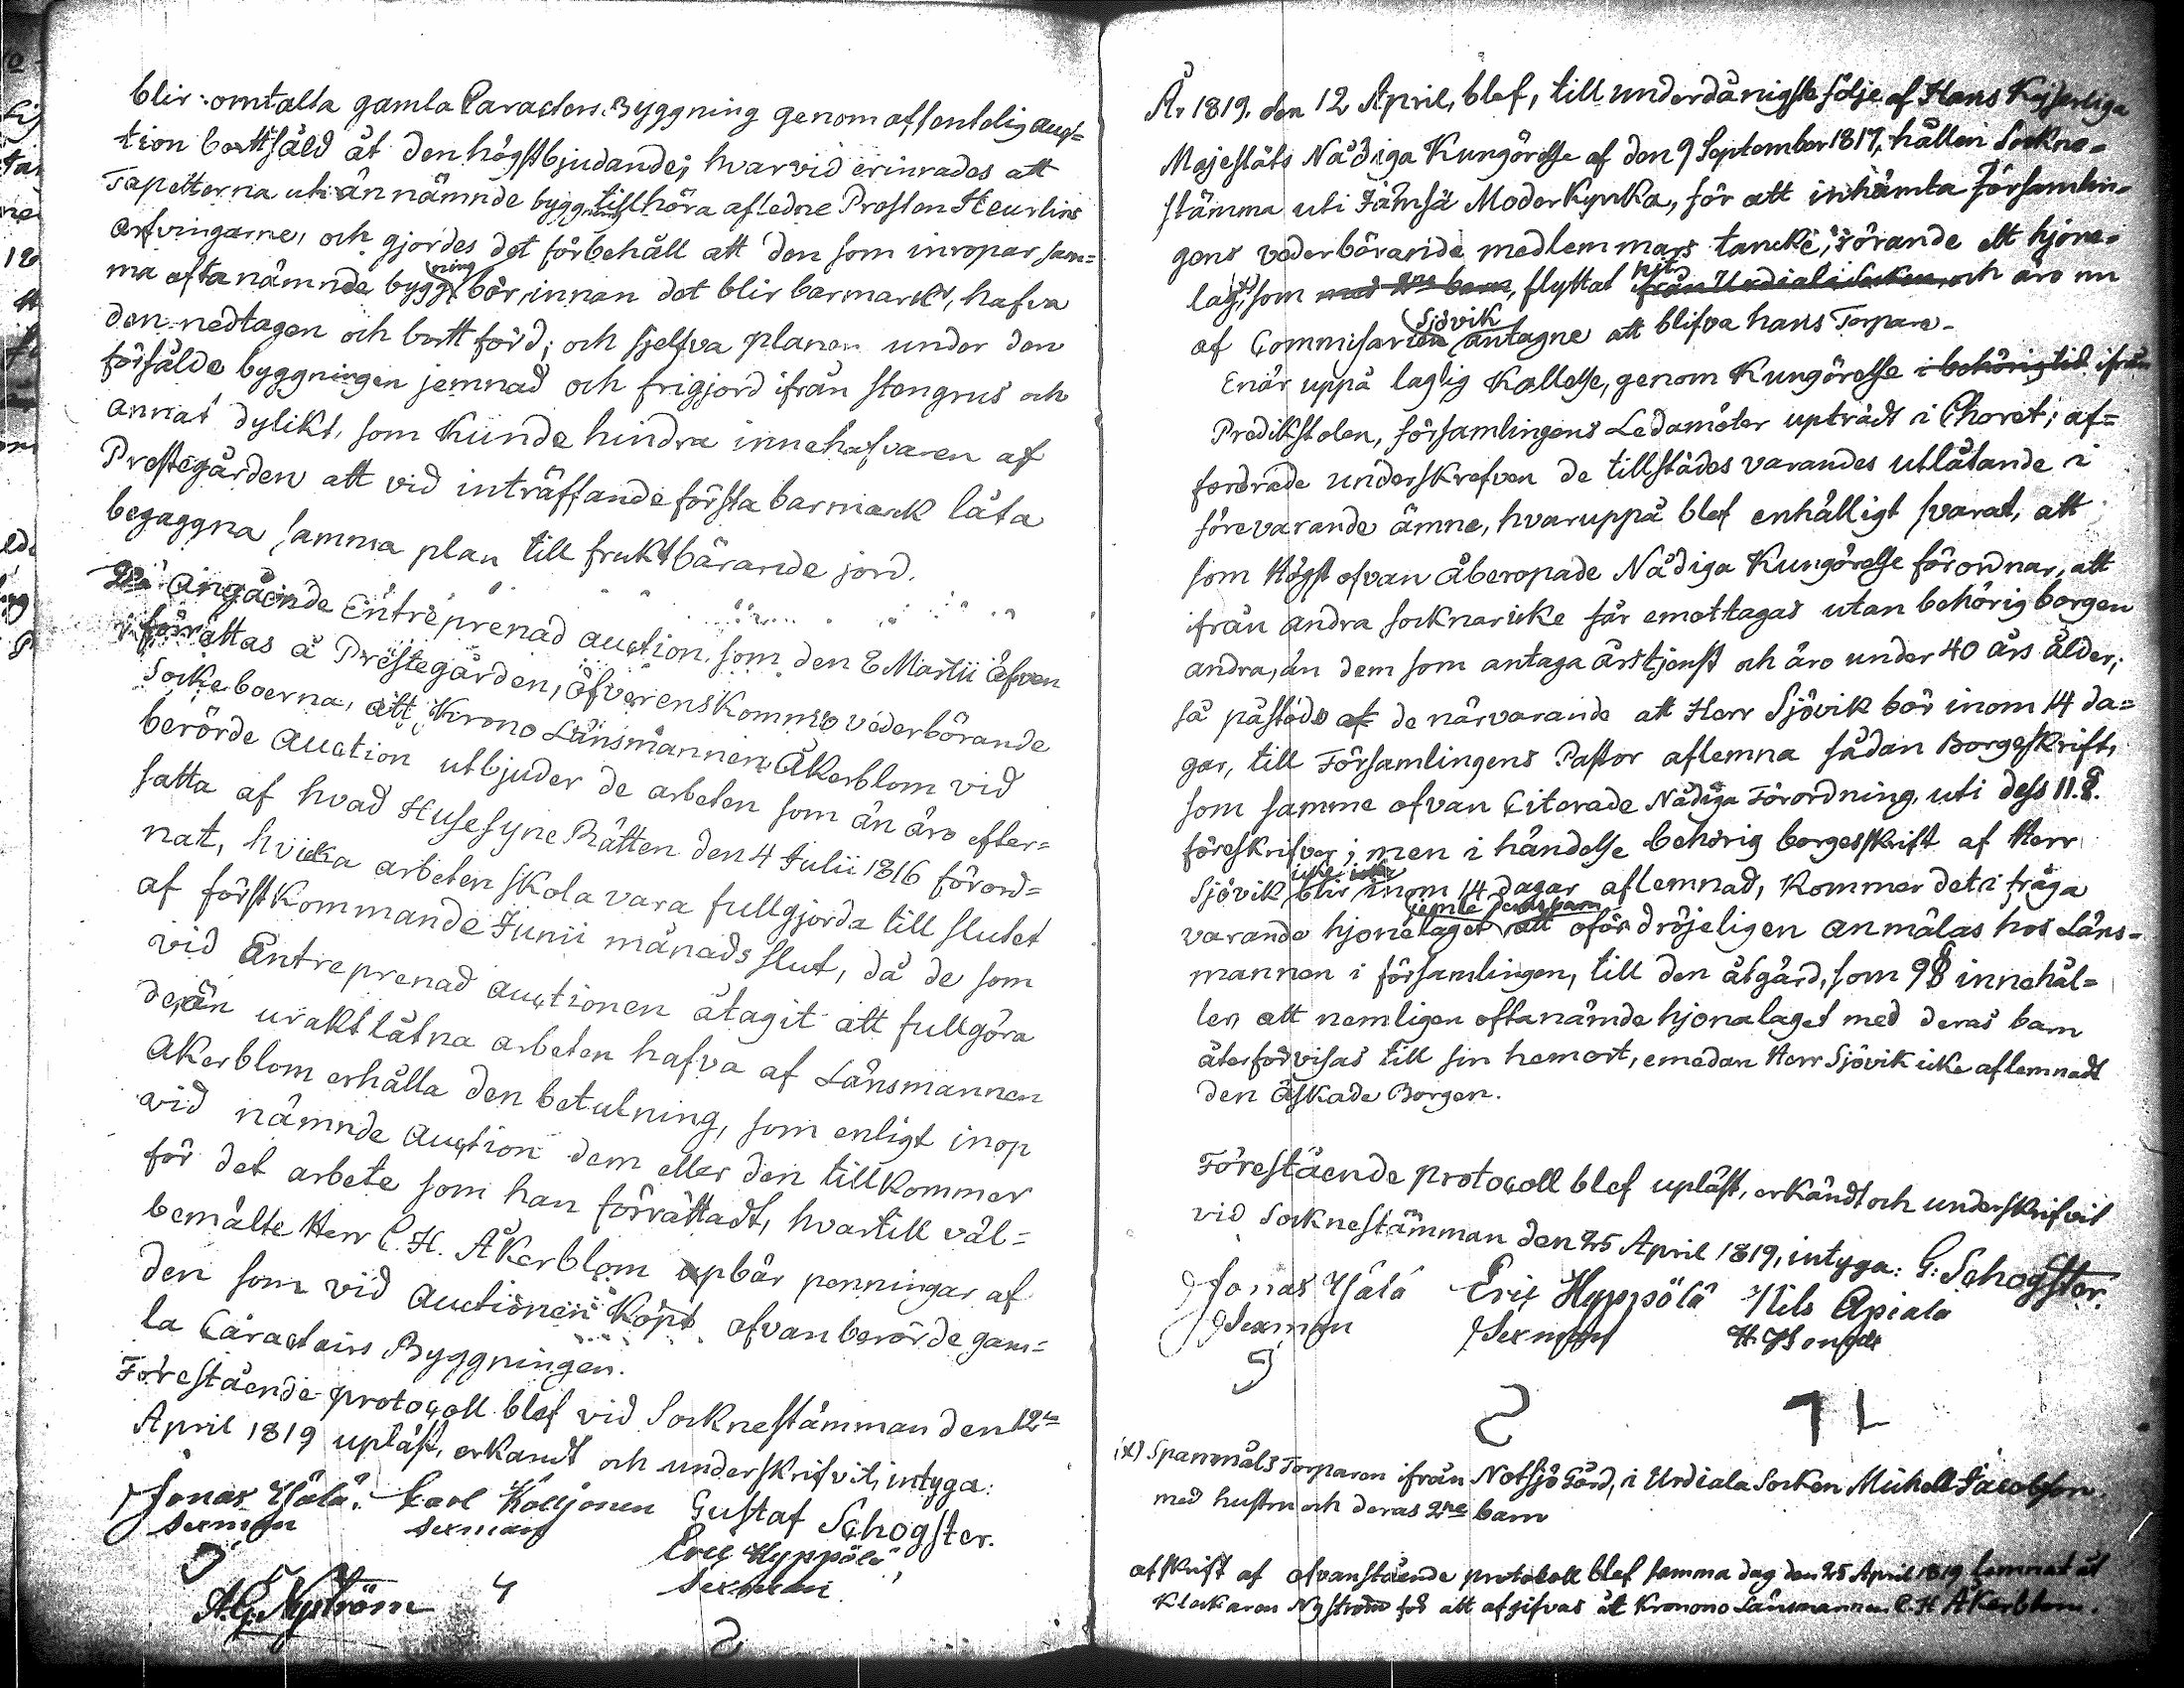 blir omtalta gamla Caracters Byggning genom offentelig auc=
tion bortsåld åt den högstbjudande; hvarvid erinrades att
Tapetterna uti ännämnde byggning tillhöra aflednе Prosten Heurlins
arfvingarne, och gjordes det förbehåll att den som inropar sam=
ma oftanämnde byggning bör, innan det blir barmarkt, hafva
den nedtagen och bortförd; och sjelfva planen under den
försålde byggningen jemnad och frigjord ifrån stengrus och
annat dylikt, som kunde hindra innehafvaren af
Prestegården att vid inträffande första barmark låta
begaggna samma plan till fruktbärande jord.
Angående Entreprenad auction som den 8 Martii äfven
förrättas å Prestegården, öfverenskommo vederbörande
Sockeboerna, att Krono Länsmannen Åkerblom vid
berörde auction utbjuder de arbeten som än äro efter=
satta af hvad Husesyne Rätten den 4 Julii 1816 förord=
nat, hvilka arbeten skola vara fullgjorda till slutet
af förstkommande Junii månads slut, då de som
vid Entreprenad auctionen åtagit att fullgöra
de än uraktlåtna arbeten hafva af Länsmannen
Åkerblom erhålla den betalning, som enligt inrop
vid nämnde auction dem eller den tillkommer
för det arbete som han förrättadt, hvartill väl=
bemälte Herr C. H. Åkerblom upbär penningar af
den som vid auctionen köpt ofvanberörde gam=
la Caracteirs Byggningen.
Förestående protocoll blef vid Socknestämman den 12te
April 1819 upläst, erkandt och underskrifvit, intyga:
Jonas Ylälä. Carl Kolljonen Gustaf Schogster.
Sexman Sexman Eric Hyppölä
Sexman
A.G. Nyström 4
År 1819, den 12 April, blef, till underdånigste följe af Hans Kejserliga
Majestäts Nådiga Kungörelse af den 9 September 1817, hållen Sockne=
stämma uti Jämsä Moderkyrka, för att inhämta Församlin=
gens vederbörande medlemmars tancke, rörande ett hjone=
lag, som med 2ne barn, flyttat hit från Urdiala Socken och äro nu
af Commisarien Sjövik antagne att blifva hans Torpare.
Enär uppå laglig Kallelse, genom Kungörelse i behörig tid ifrån
Predikstolen, församlingens Ledamöter upträdt i Choret; af=
fordrade underskrefven de tillstädes varandes utlåtande i
förevarande ämne, hvaruppå blef enhälligt svarat, att
som Högst ofvan åberopade Nådiga Kungörelse förordnar, att
ifrån andra socknar icke får emottagas utan behörig borgen
andra, än dem som antaga årstjenst och äro under 40 års ålder;
så påstods af de närvarande att Herr Sjövik bör inom 14 da=
gar, till Församlingens Pastor aflemna sådan Borgeskrift,
som samme ofvan Citerade Nådiga Förordning, uti dess 11. §.
föreskrifver; men i händelse behörig borgesskrift af Herr
Sjövik icke blir inom 14 dagar aflemnad, kommer det i fråga
varande hjonelaget jemte deras barn att ofördröjeligen anmälas hos Läns=
mannen i församlingen, till den åtgärd, som 9 § innehål=
ler, att nemligen oftanämde hjonalaget med deras barn
återförvisas till sin hemort, emedan Herr Sjövik icke aflemnadt
den äskade Borgen.
Förestående protocoll blef upläst, erkändt och underskrifvit
vid Socknestämman den 25 April 1819, intyga: G: Schogster.
Jonas Ylälä Eric Hyppölä Nils Apiala
Sexman Sexman
(x) Spanmåls Torparen ifrån Notsjö Gård, i Urdiala Socken Michell Jacobsson
med hustru och deras 2ne barn
afskrift af ofvanstående protocoll blef samma dag den 25 April 1819 lemnat åt
Klockaren Nyström för att afgifvas åt Kronono Länsmannen C. H Åkerblom.